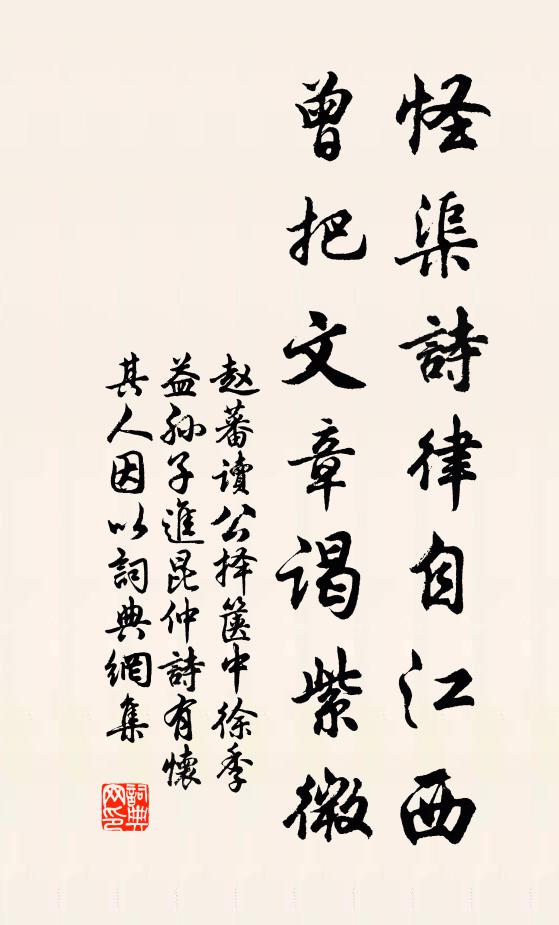 怪渠詩律自江西
曾把文章谒紫微
赵蕃讀公择箧中徐季
益孙子進昆仲詩有懷
其人因以詞典網集
詞典
网印